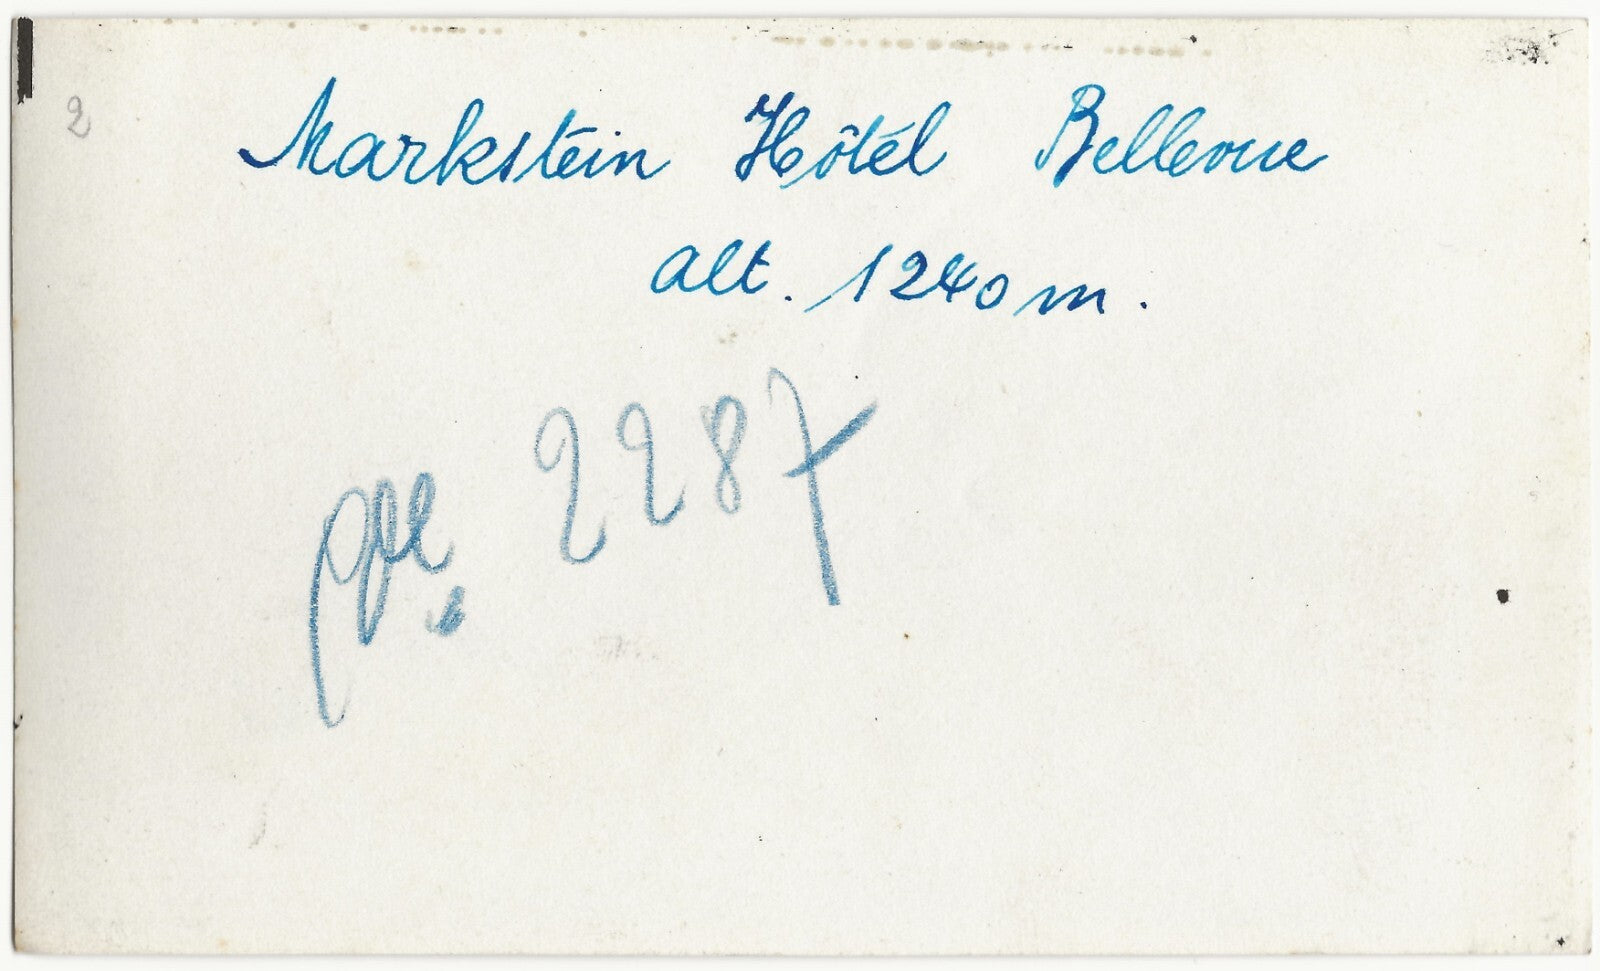 2
Markstein Hôtél Bellevue
alt. 1240 m.
2287